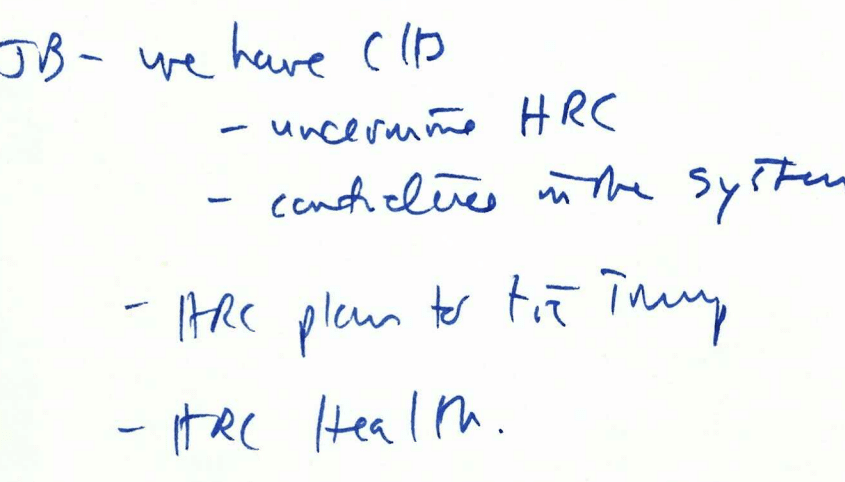 JB - we have CID
- undermine HRC
- candidates in the system
- HRC plan to tie Trump
- HRC Health.